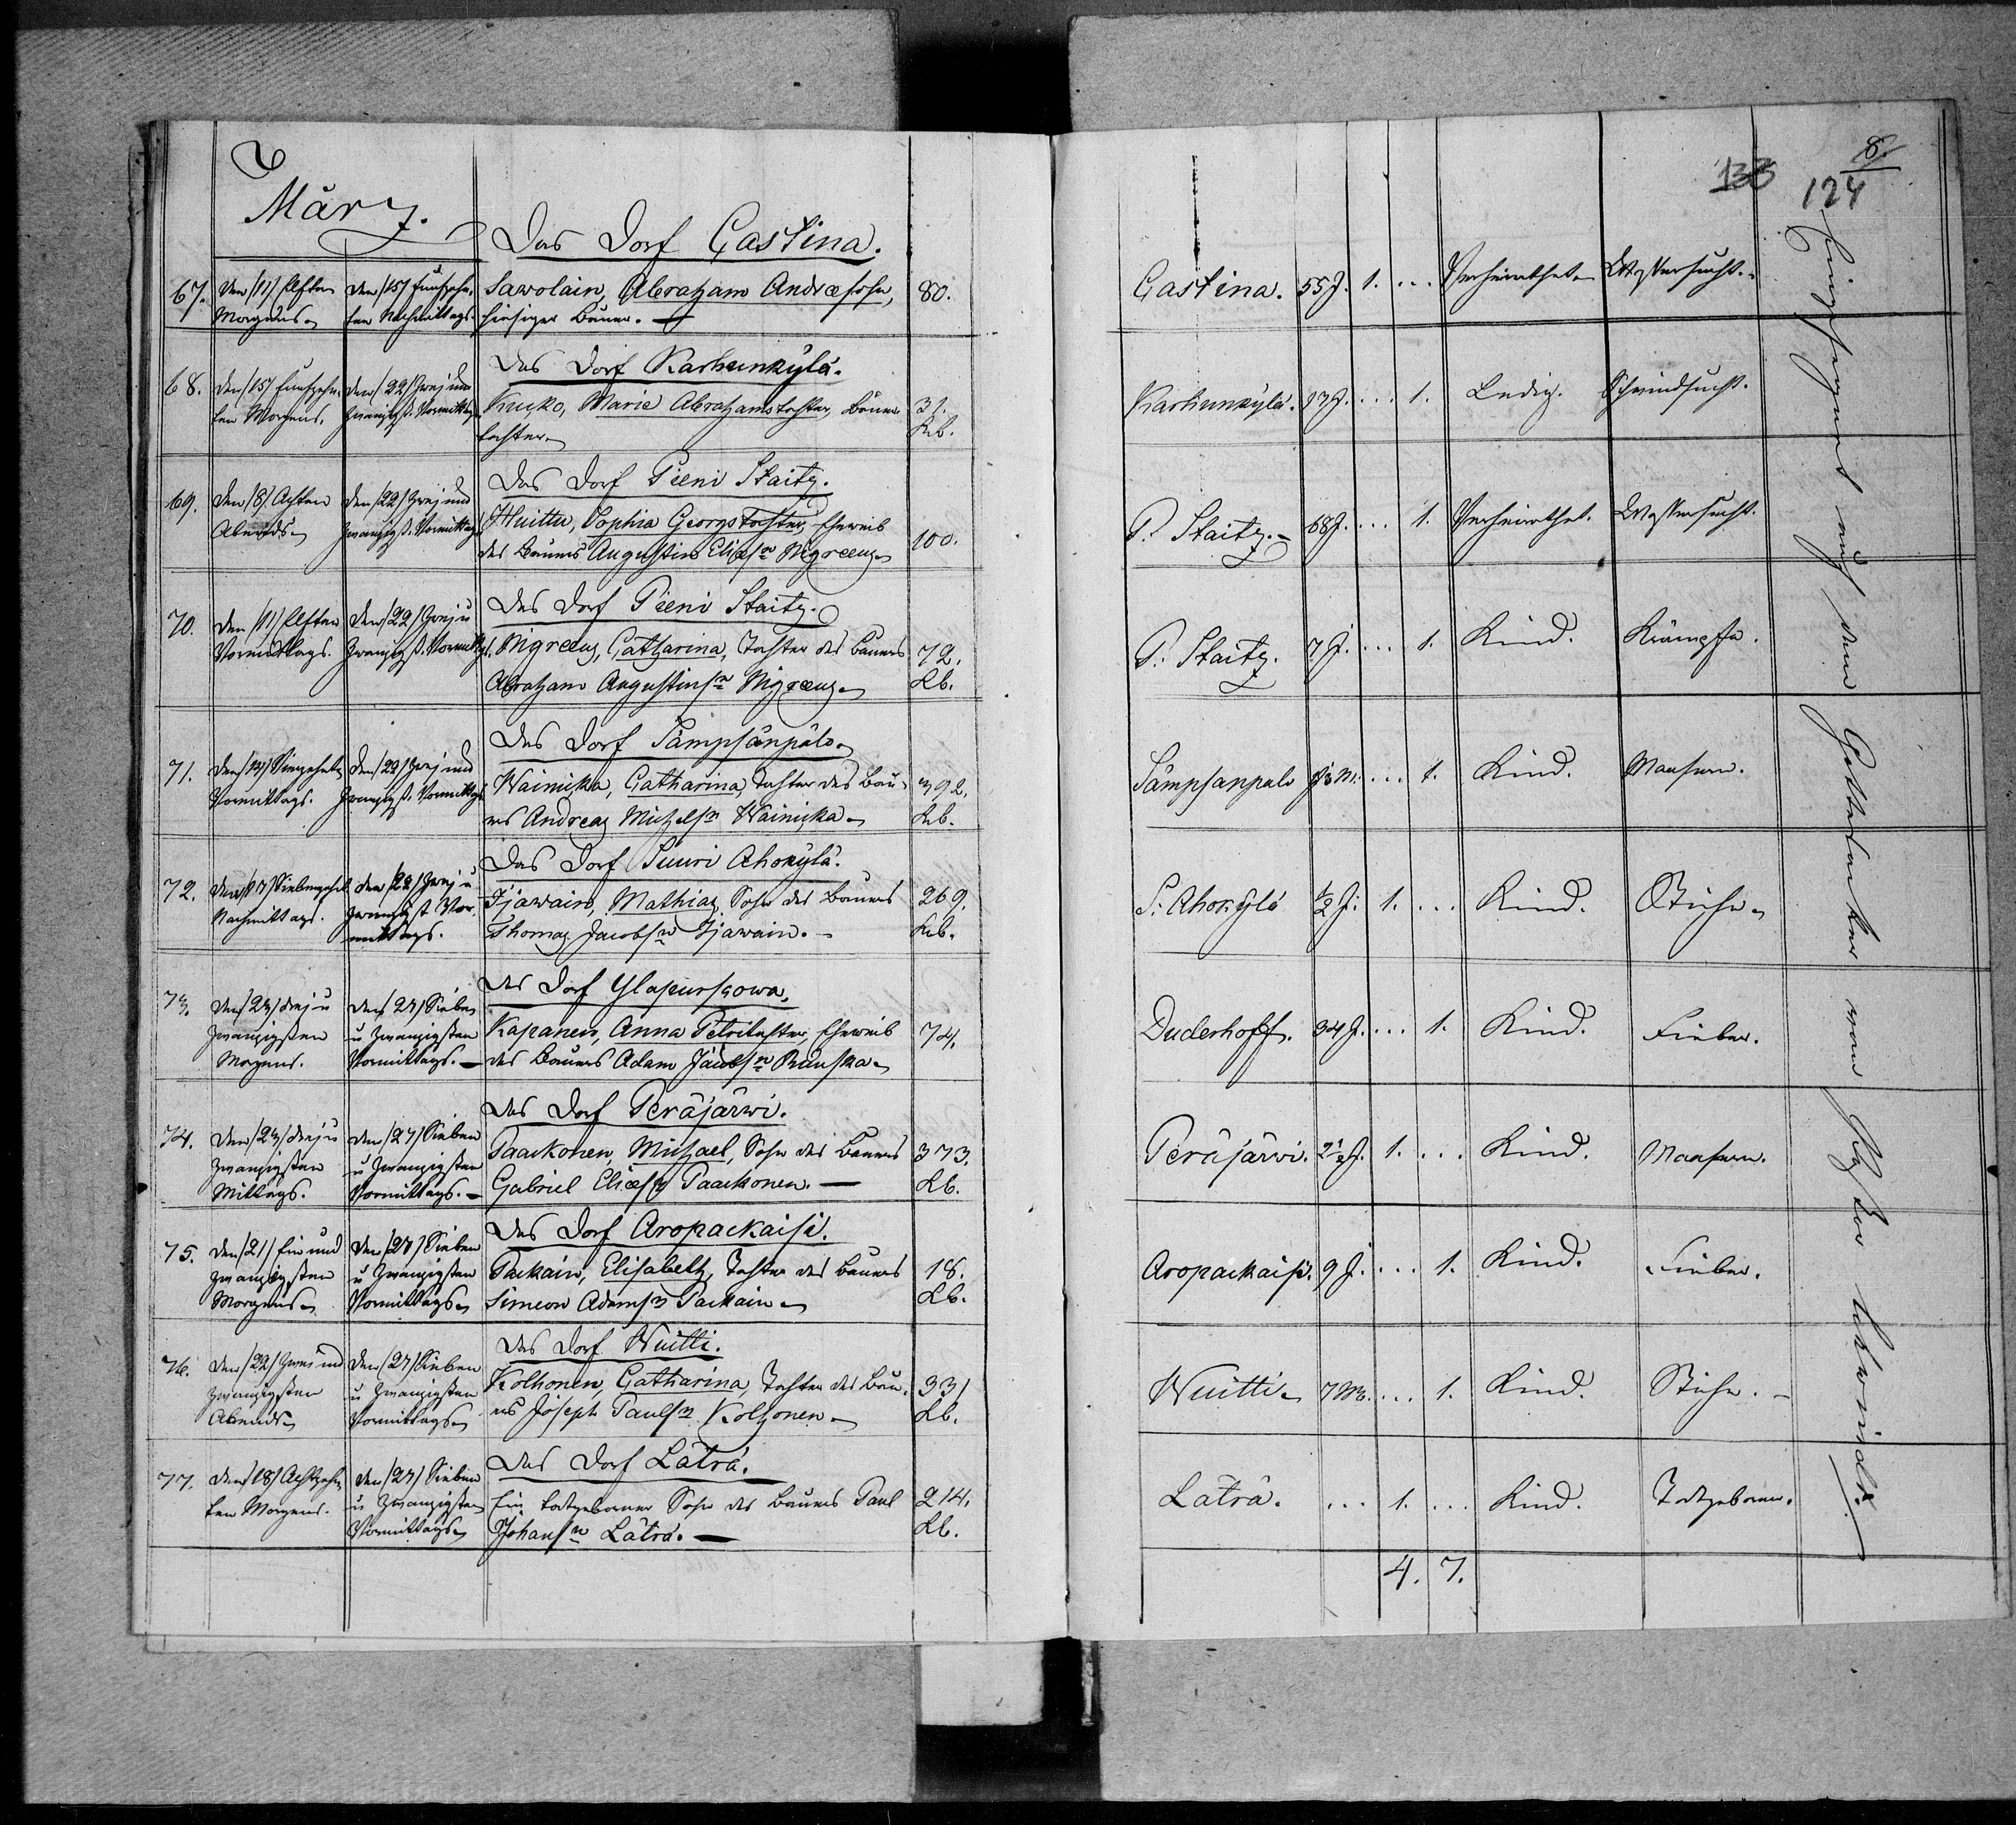 März.
Das Dorf Castina.
67. Den /11/ Elften Morgens. Den /15/ Funfzehnten Nachmittags. Sawolain, Abraham Andræsohn, 80.
hiesiger Bauer.
Das Dorf Karhunkylä.
68. Den /15/ Funfzehnten Morgens. Den /22/ Zwej und Zwanzigst. Vormittags. Kuuko, Marie Abrahamstochter, Bauer 31.
tochter. Kb.
Das Dorf Pieni Staitz.
69. Den /8/ Achten Abends. Den /22/ Zwej und Zwanzigst. Vormittags. Huittu, Sophia Georgstochter, Eheweib
des Bauers Augustin Eliæsn 100.
Das Dorf Pieni Staitz.
70. Den /11/ Elften Vormittags. Den /22/ Zwej u Zwanzigst. Vormittags. Catharina, Tochter des Bauers 72.
Abraham Augustinsn Kb.
Das Dorf Sämpsänpalo.
71. Den /14/ Vierzehnten Vormittags. Den /22/ Zwej und Zwanzigst. Vormittags. Wainikka, Catharina, Tochter des Bau- 392.
ers Andreas Michelsn Wainikka. Kb.
Das Dorf Suuri Ahokylä.
72. Den /17/ Siebenzehnt. Nachmittags. Den /22/ Zwej u Zwanzigst Vormittags. Ijawain, Mathias, Sohn des Bauers 269.
Thomas Jacobsn Ijawain. Kb.
Das Dorf Ylapurskowa.
73. Den /23/ Drej u Zwanzigsten Morgens. Den /27/ Sieben u Zwanzigsten Vormittags. Kapanen, Anna Petritochter, Eheweib 74.
des Bauers Adam
Das Dorf Peräjärwi.
74. Den /23/ Drej u Zwanzigsten Mittags. Den /27/ Sieben u Zwanzigsten Vormittags. Paackonen, Michael, Sohn des Bauers 373.
Gabriel Eliæsn Paackonen. Kb.
Das Dorf Aropackaisi.
75. Den /21/ Ein und Zwanzigsten Morgens. Den /27/ Sieben u Zwanzigsten Vormittags. Packain, Elisabeth, Tochter des Bauers 18.
Simeon Adamsn Packain. Kb.
Das Dorf Wuitti.
76. Den /22/ Zwei und Zwanzigsten Abends. Den /27/ Sieben u Zwanzigsten Vormittags. Kolhonen, Catharina, Tochter des Bau- 331
ers Joseph Paulsn Kolhonen. Kb.
Das Dorf Läträ.
77. Den /18/ Achtzehnten Morgens. Den /27/ Sieben u Zwanzigsten Vormittags. Ein todtgeborner Sohn des Bauers Paul 214.
Johansn Läträ. Kb.
8.
133 124
Castina. 55 J. 1. ... Verheirathet. Wassersucht.
Karhunkylä. ... 1. Ledig. Schwindsucht.
P. Staitz. 68 J. ... 1. Verheirathet. Wassersucht.
P. Staitz. 7 J. ... 1. Kind. Krämpfe.
Sämpsanpalo ... 1. Kind. Masern.
S. Ahokylä ½ J. 1. ... Kind. Stiche.
Duderhoff. 34 J. ... 1. Kind. Fieber.
Peräjärwi. 2½ J. 1. ... Kind. Masern.
Aropackaisi. 9 J. ... 1. Kind. Fieber.
Wuitti. 7 M. ... 1. Kind. Stiche.
Läträ. ... 1. ... Kind. Todtgeboren.
4. 7.
Eingesegnet auf dem Gottesacker von Pastor